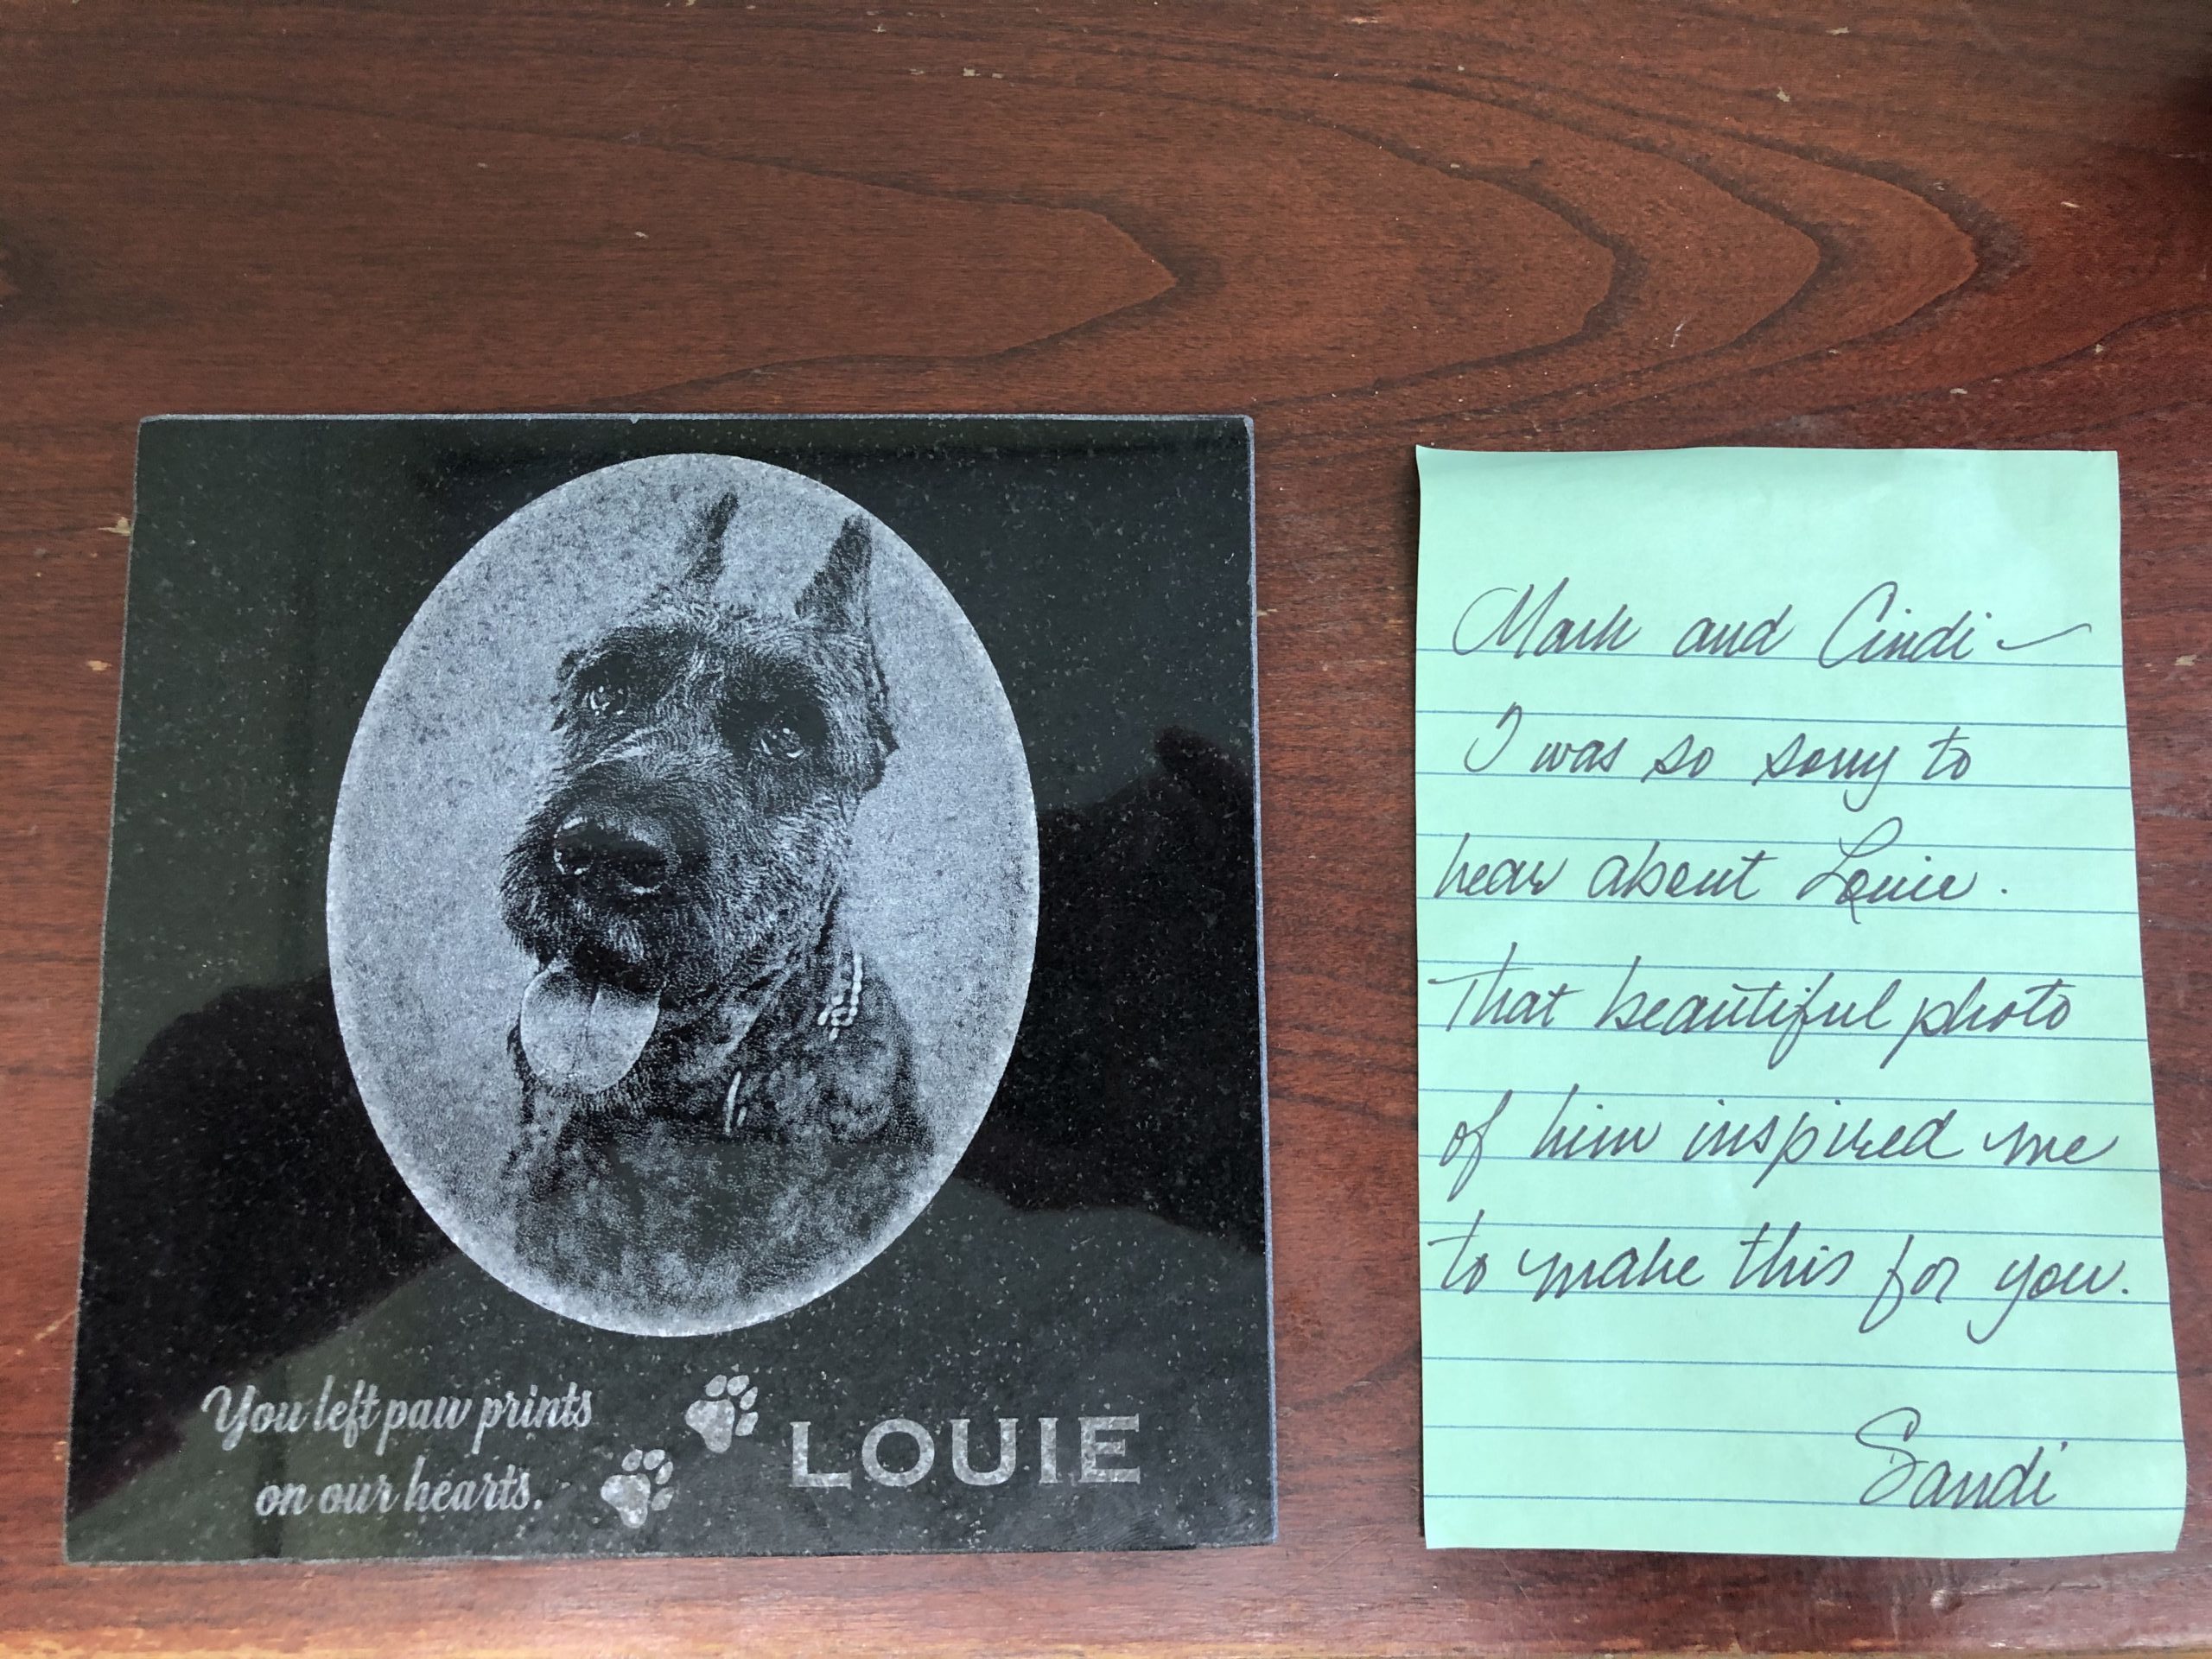 You left paw prints
on our hearts.
LOUIE
Mark and Cindi -
I was so sorry to
hear about Louie.
That beautiful photo
of him inspired me
to make this for you.
Sandi